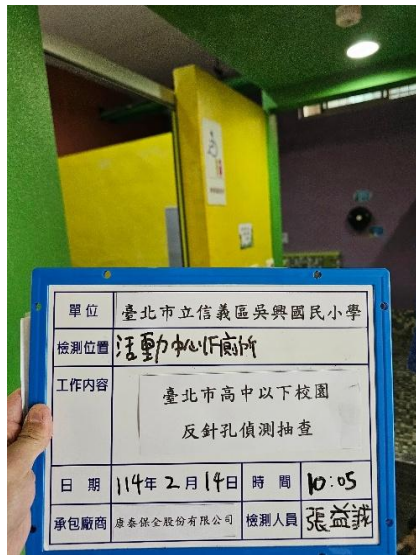 單位 臺北市立信義區吳興國民小學
檢測位置 活動中心1F廁所
工作內容 臺北市高中以下校園
反針孔偵測抽查
日期 114年2月14日 時間 10:05
承包廠商 康泰保全股份有限公司 檢測人員 張益誠